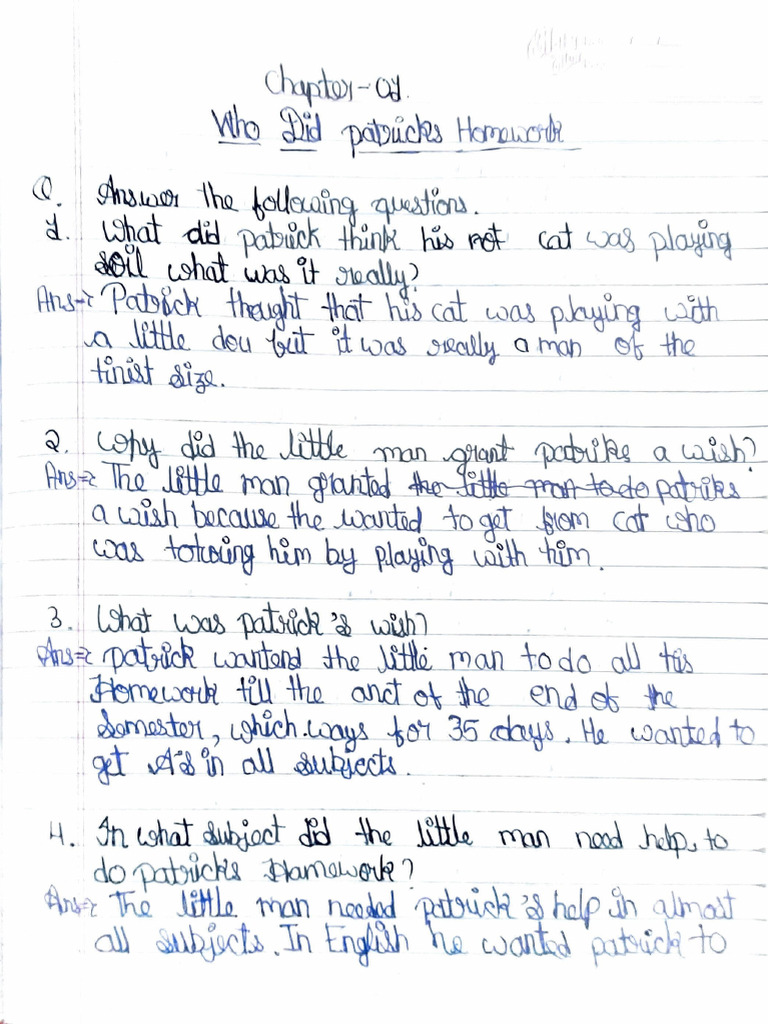 Chapter-01.
Who Did patricks Homework
Q. Answer the following questions.
1. What did patrick think his not cat was playing
soil what was it really?
Ans→ Patrick thought that his cat was playing with
a little dou but it was really a man of the
tinist size.
2. Why did the little man grant patriks a wish?
Ans→ The little man granted the little man to do patriks
a wish because the wanted to get from cat who
was him by playing with him.
3. What was patrick's wish?
Ans→ patrick wantend the little man to do all his
Homework till the anct of the end of the
Somester, which ways for 35 days. He wanted to
get A's in all subjects.
4. In what subject did the little man need help, to
do patricks Hamework?
Ans→ The little man needed patrick's help in almost
all subjects. In English he wanted patrick to